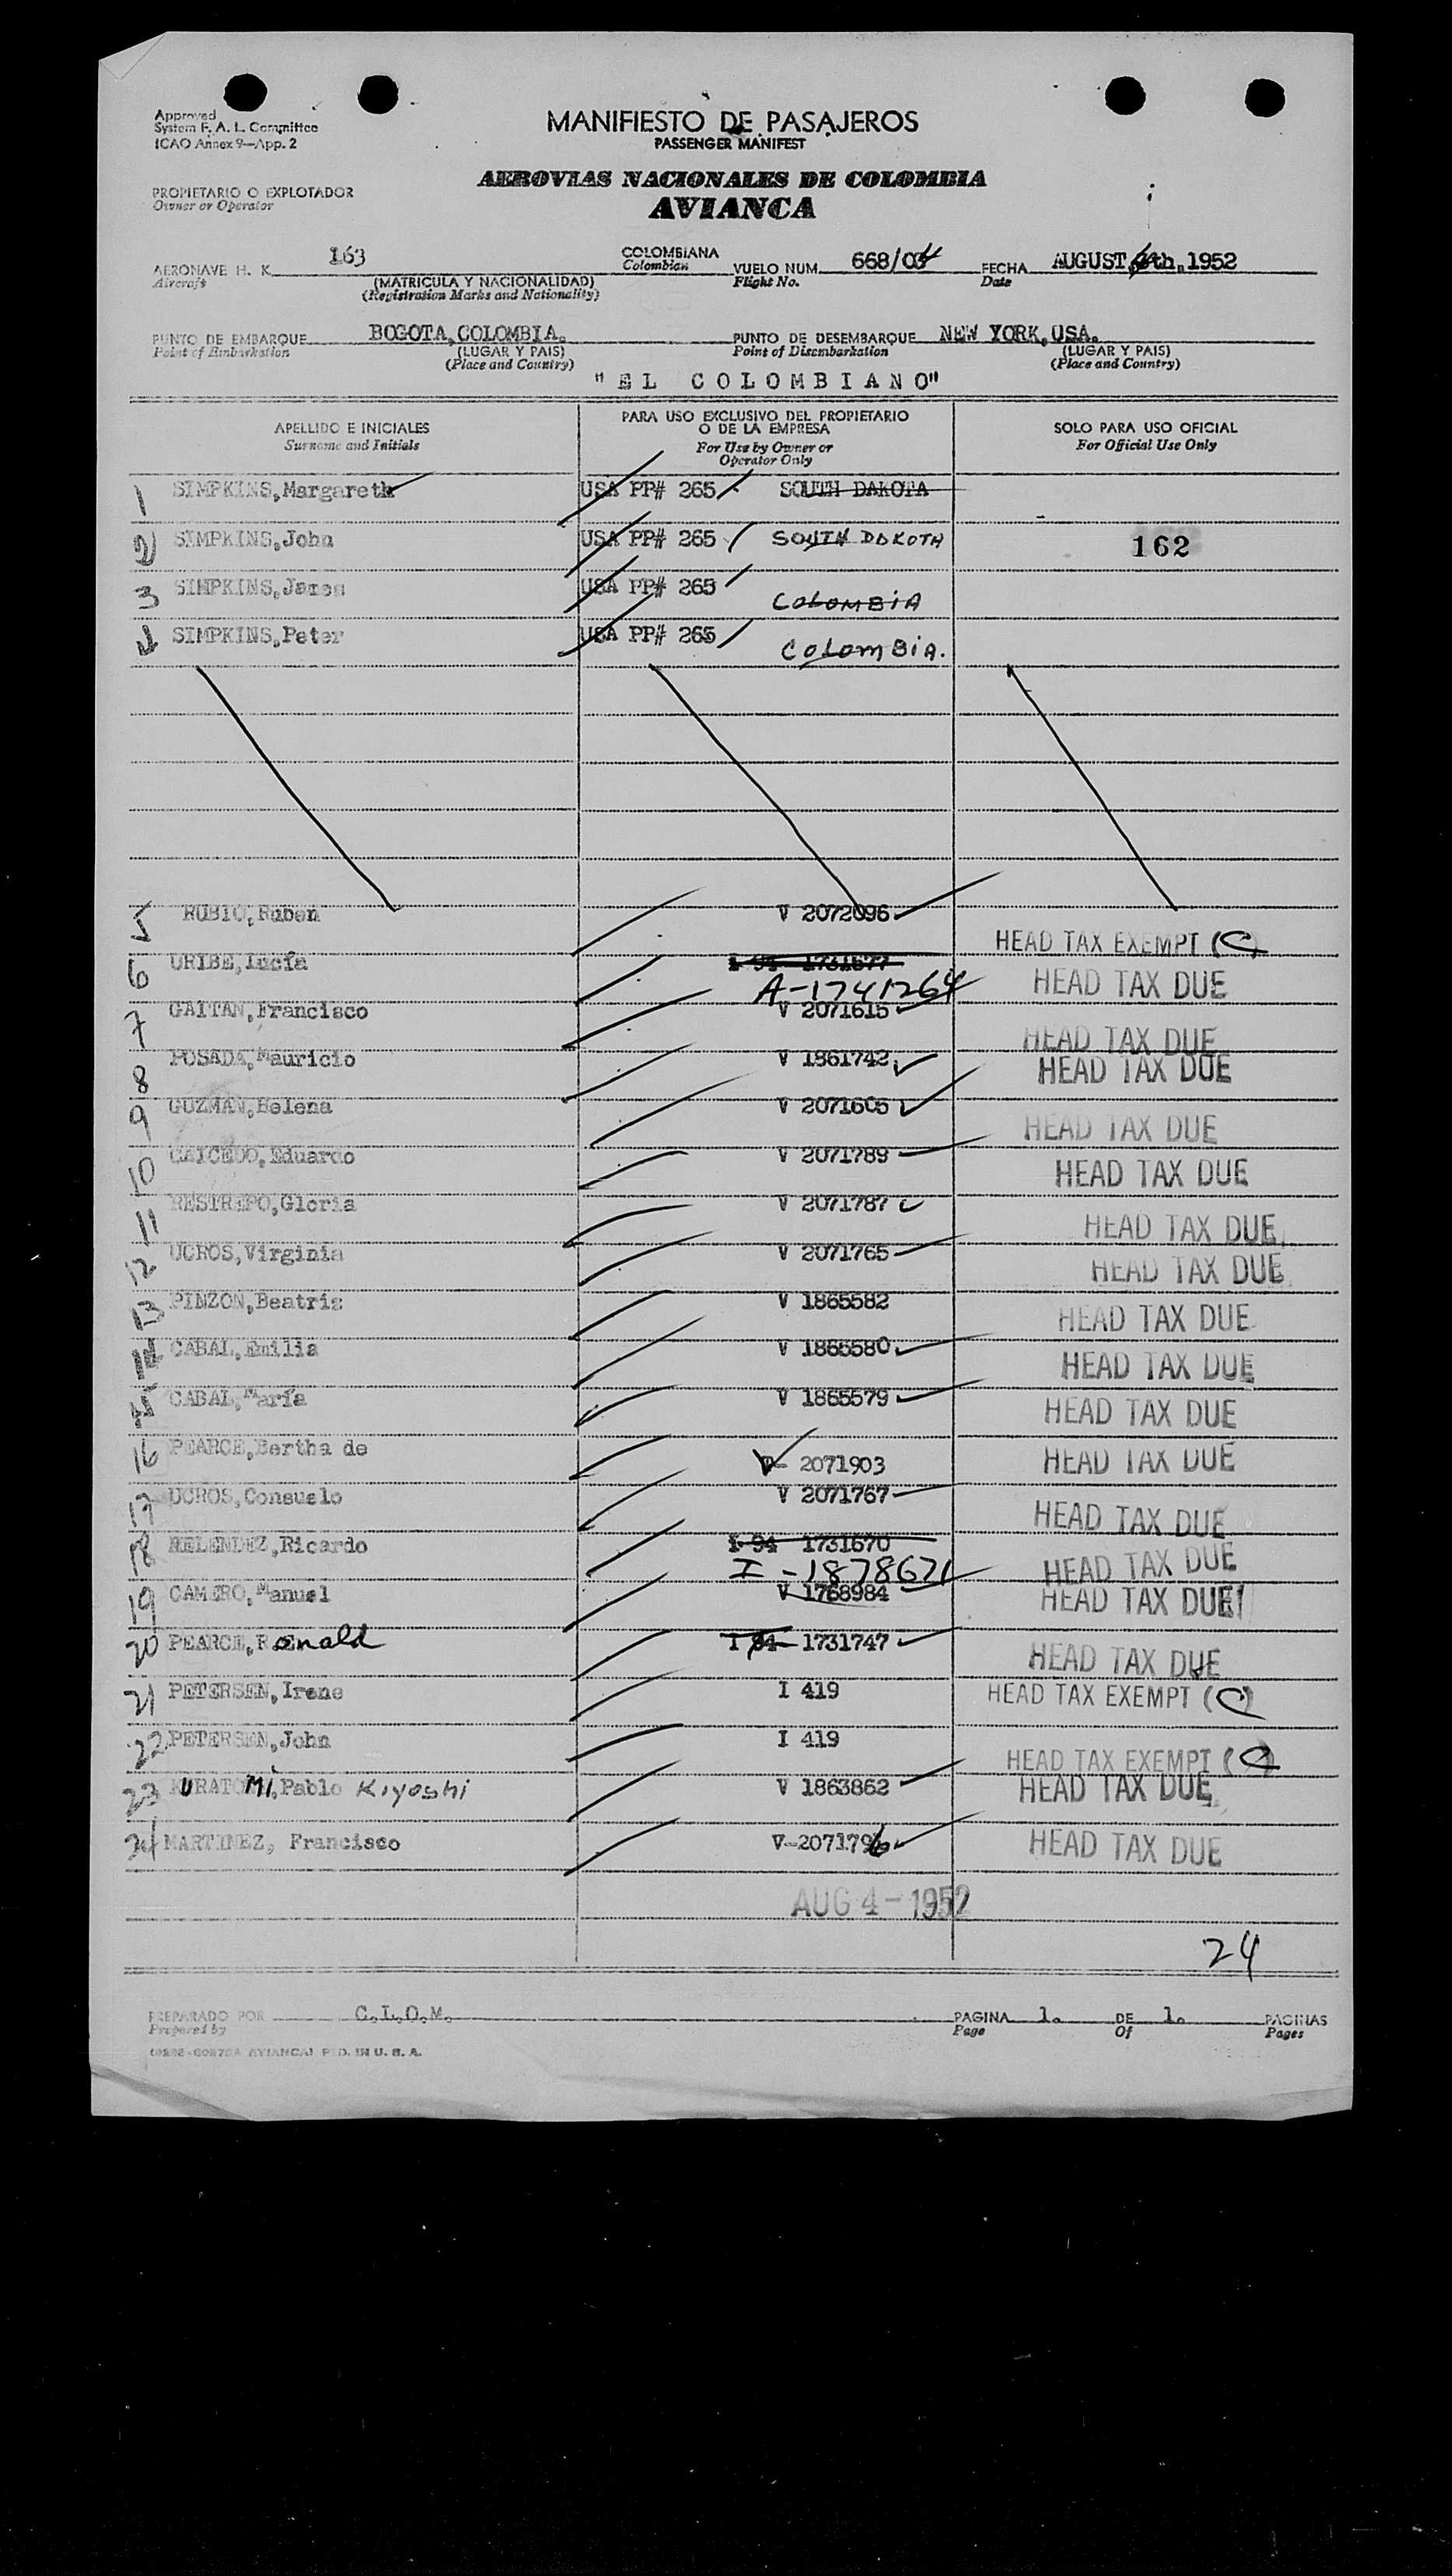 Approved
System F. A. L. Committee
ICAO Annex 9—App. 2
MANIFIESTO DE PASAJEROS
PASSENGER MANIFEST
AEROVIAS NACIONALES DE COLOMBIA
AVIANCA
PROPIETARIO O EXPLOTADOR
Owner or Operator
AERONAVE H. K. 163 COLOMBIANA VUELO NUM. 668/04 FECHA AUGUST 4th.1952
Aircraft Colombian Flight No. Date
(MATRICULA Y NACIONALIDAD)
(Registration Marks and Nationality)
PUNTO DE EMBARQUE BOGOTA,COLOMBIA. PUNTO DE DESEMBARQUE NEW YORK,USA.
Point of Embarkation (LUGAR Y PAIS) Point of Disembarkation (LUGAR Y PAIS)
(Place and Country) (Place and Country)
"EL COLOMBIANO"
APELLIDO E INICIALES
Surname and Initials
PARA USO EXCLUSIVO DEL PROPIETARIO
O DE LA EMPRESA
For Use by Owner or
Operator Only
SOLO PARA USO OFICIAL
For Official Use Only
1 SIMPKINS,Margareth USA PP# 265 SOUTH DAKOTA
2 SIMPKINS,John USA PP# 265 SOUTH DAKOTA 162
3 SIMPKINS,James USA PP# 265 COLOMBIA
4 SIMPKINS,Peter USA PP# 265 COLOMBIA.
5 RUBIO,Ruben V 2072096 HEAD TAX EXEMPT (C)
6 URIBE,Lucía I 94 1731677 A-1741264 HEAD TAX DUE
7 GAITAN,Francisco V 2071615 HEAD TAX DUE
8 POSADA,Mauricio V 1861742 HEAD TAX DUE
9 GUZMAN,Helena V 2071605 HEAD TAX DUE
10 CAICEDO,Eduardo V 2071789 HEAD TAX DUE
11 RESTREPO,Gloria V 2071787 HEAD TAX DUE
12 UCROS,Virginia V 2071765 HEAD TAX DUE
13 PINZON,Beatriz V 1865582 HEAD TAX DUE
14 CABAL,Emilia V 1865580 HEAD TAX DUE
15 CABAL,María V 1865579 HEAD TAX DUE
16 PEARCE,Bertha de V- 2071903 HEAD TAX DUE
17 UCROS,Consuelo V 2071767 HEAD TAX DUE
18 MELENDEZ,Ricardo I-94 1731670 I-1878671 HEAD TAX DUE
19 CAMERO,Manuel V 1768984 HEAD TAX DUE
20 PEARCE,Ronald I 94- 1731747 HEAD TAX DUE
21 PETERSEN,Irene I 419 HEAD TAX EXEMPT (C)
22 PETERSEN,John I 419 HEAD TAX EXEMPT (C)
23 KURATOMI,Pablo Kiyoshi V 1863862 HEAD TAX DUE
24 MARTINEZ, Francisco V-2071796 HEAD TAX DUE
AUG 4-1952
24
PREPARADO POR C.L.O.M. PAGINA 1. DE 1. PAGINAS
Prepared by Page Of Pages
AVIANCA) PTD. IN U. S. A.